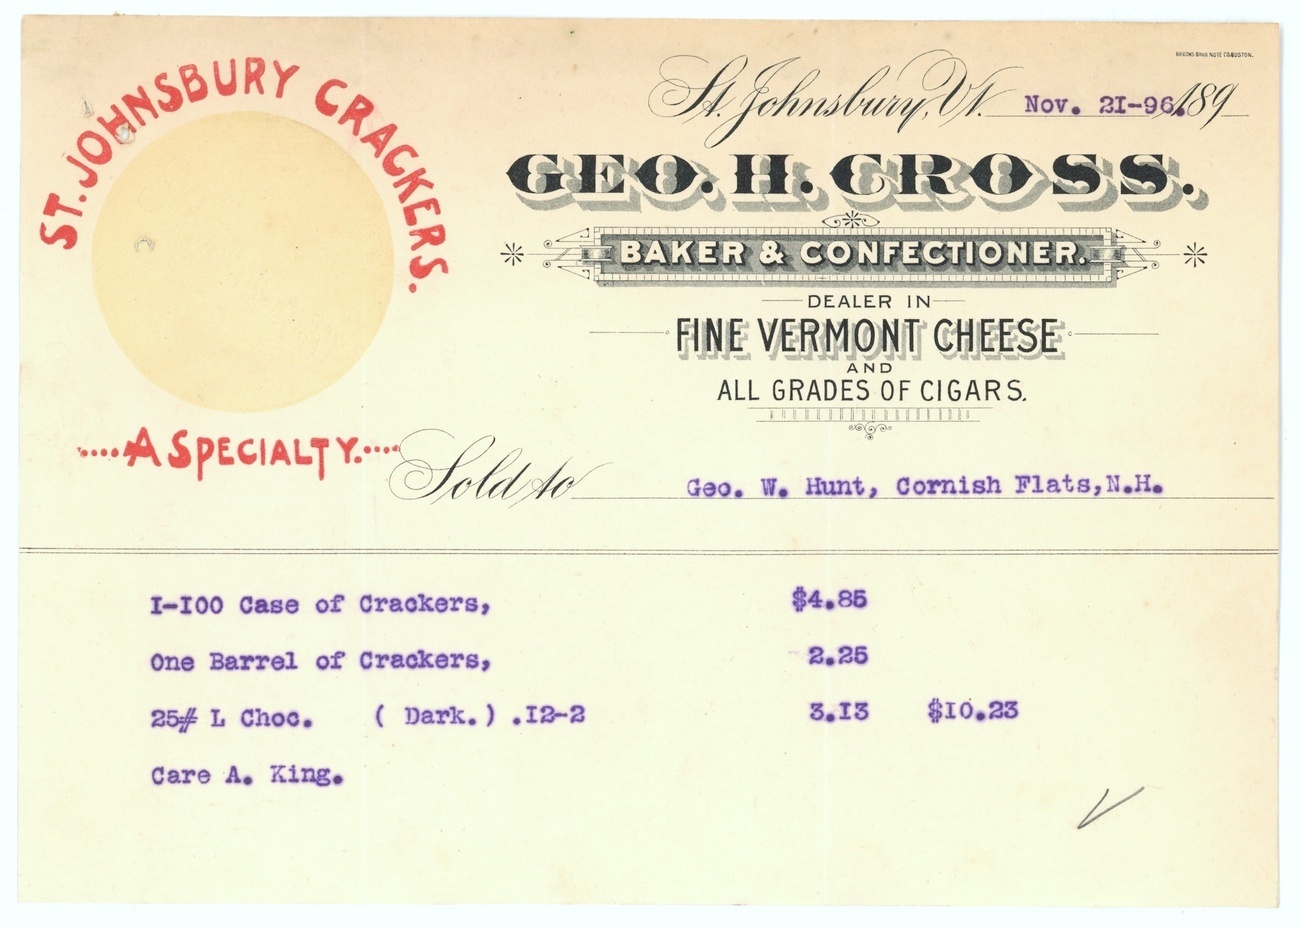 BROOKS BANK NOTE CO. BOSTON.
ST. JOHNSBURY CRACKERS.
A SPECIALTY.
St. Johnsbury, Vt. Nov. 21-96. 189
GEO. H. CROSS.
BAKER & CONFECTIONER.
DEALER IN
FINE VERMONT CHEESE
AND
ALL GRADES OF CIGARS.
Sold to Geo. W. Hunt, Cornish Flats, N.H.
1-100 Case of Crackers, $4.85
One Barrel of Crackers, 2.25
25# L Choc. ( Dark. ) .12-2 3.13 $10.23
Care A. King.